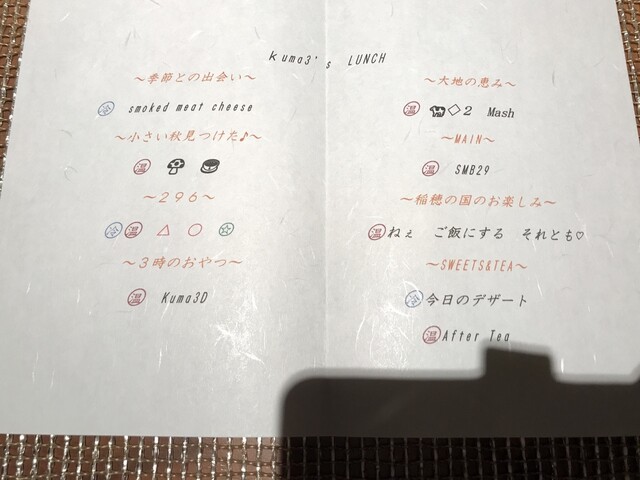 Kuma3's LUNCH
～季節との出会い～
冷 smoked meat cheese
～小さい秋見つけた♪～
温
～２９６～
冷 温 △ ○ ☆
～３時のおやつ～
温 Kuma3D
～大地の恵み～
温 🐄◇２ Mash
～MAIN～
温 SMB29
～稲穂の国のお楽しみ～
温 ねぇ ご飯にする それとも♡
～SWEETS&TEA～
冷 今日のデザート
温 After Tea